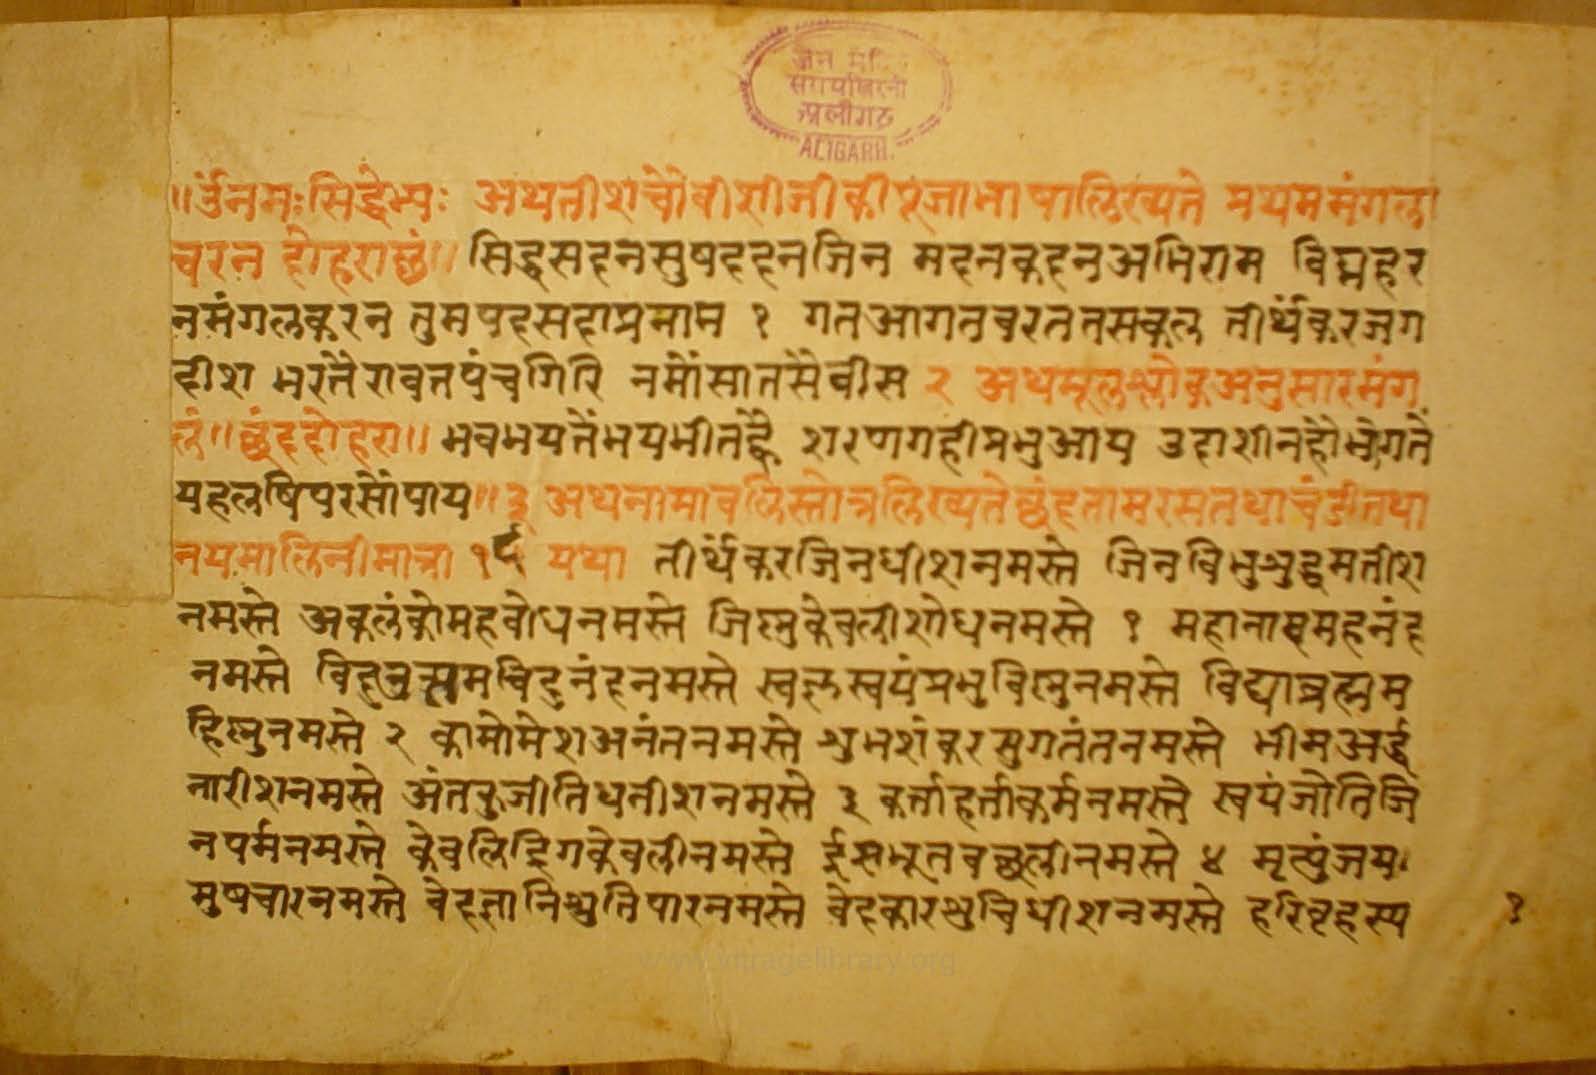 जैन मंदि
सरायखिरनी
अलीगढ
ALIGARH.
॥ र्उनमःसिद्धेभ्यः अथतीशचौबीशीजीकीपूजाभाषालिख्यते प्रथममंगला
चरन दोहराछं॥ सिद्धसदनसुषददनजिन मदनकदनअभिराम विघ्नहर
नमंगलकरन तुमपदसदाप्रनाम १ गतआगतवरततसकल तीर्थंकरजग
दीश भरतैरावतपंचगिरि नमौंसातसैवीस २ अथमूलश्लोकअनुसारमंग
लं॥छंददोहरा॥ भवभयतैंभयभीतह्वै शरणगहीप्रभुआय उदाशीनहौंभोगतैं
यहलषिपरसौंपाय॥३ अथनामावलिस्तोत्रलिख्यतेछंदतामरसतथाचंडीतथा
नयमालिनीमात्रा १६ यथा तीर्थंकरजिनधीशनमस्ते जिनविभुशुद्धमतीश
नमस्ते अकलंकोमहबोधनमस्ते जिस्नुकेवलीशोधनमस्ते १ महानाममहनंद
नमस्ते चिदनंदनमस्ते स्वज्ञस्वयंप्रभुविस्नुनमस्ते विद्याब्रह्मम
हिस्नुनमस्ते २ कामोमेशअनंतनमस्ते शुभशंकरसुगतंतनमस्ते भीमअर्द्ध
नारीशनमस्ते अंतकुजीतिधतीशनमस्ते ३ कर्त्ताहर्त्ताकर्मनमस्ते स्वयंजोतिजि
नपर्मनमस्ते केवलिद्रिगकेवलीनमस्ते ईसभूतवछलीनमस्ते ४ मृत्युंजय
मुषचारनमस्ते वेदज्ञानिश्रुतिपारनमस्ते वेदकारशुचिधीशनमस्ते हरिवृहस्प
१
www.vitragelibrary.org